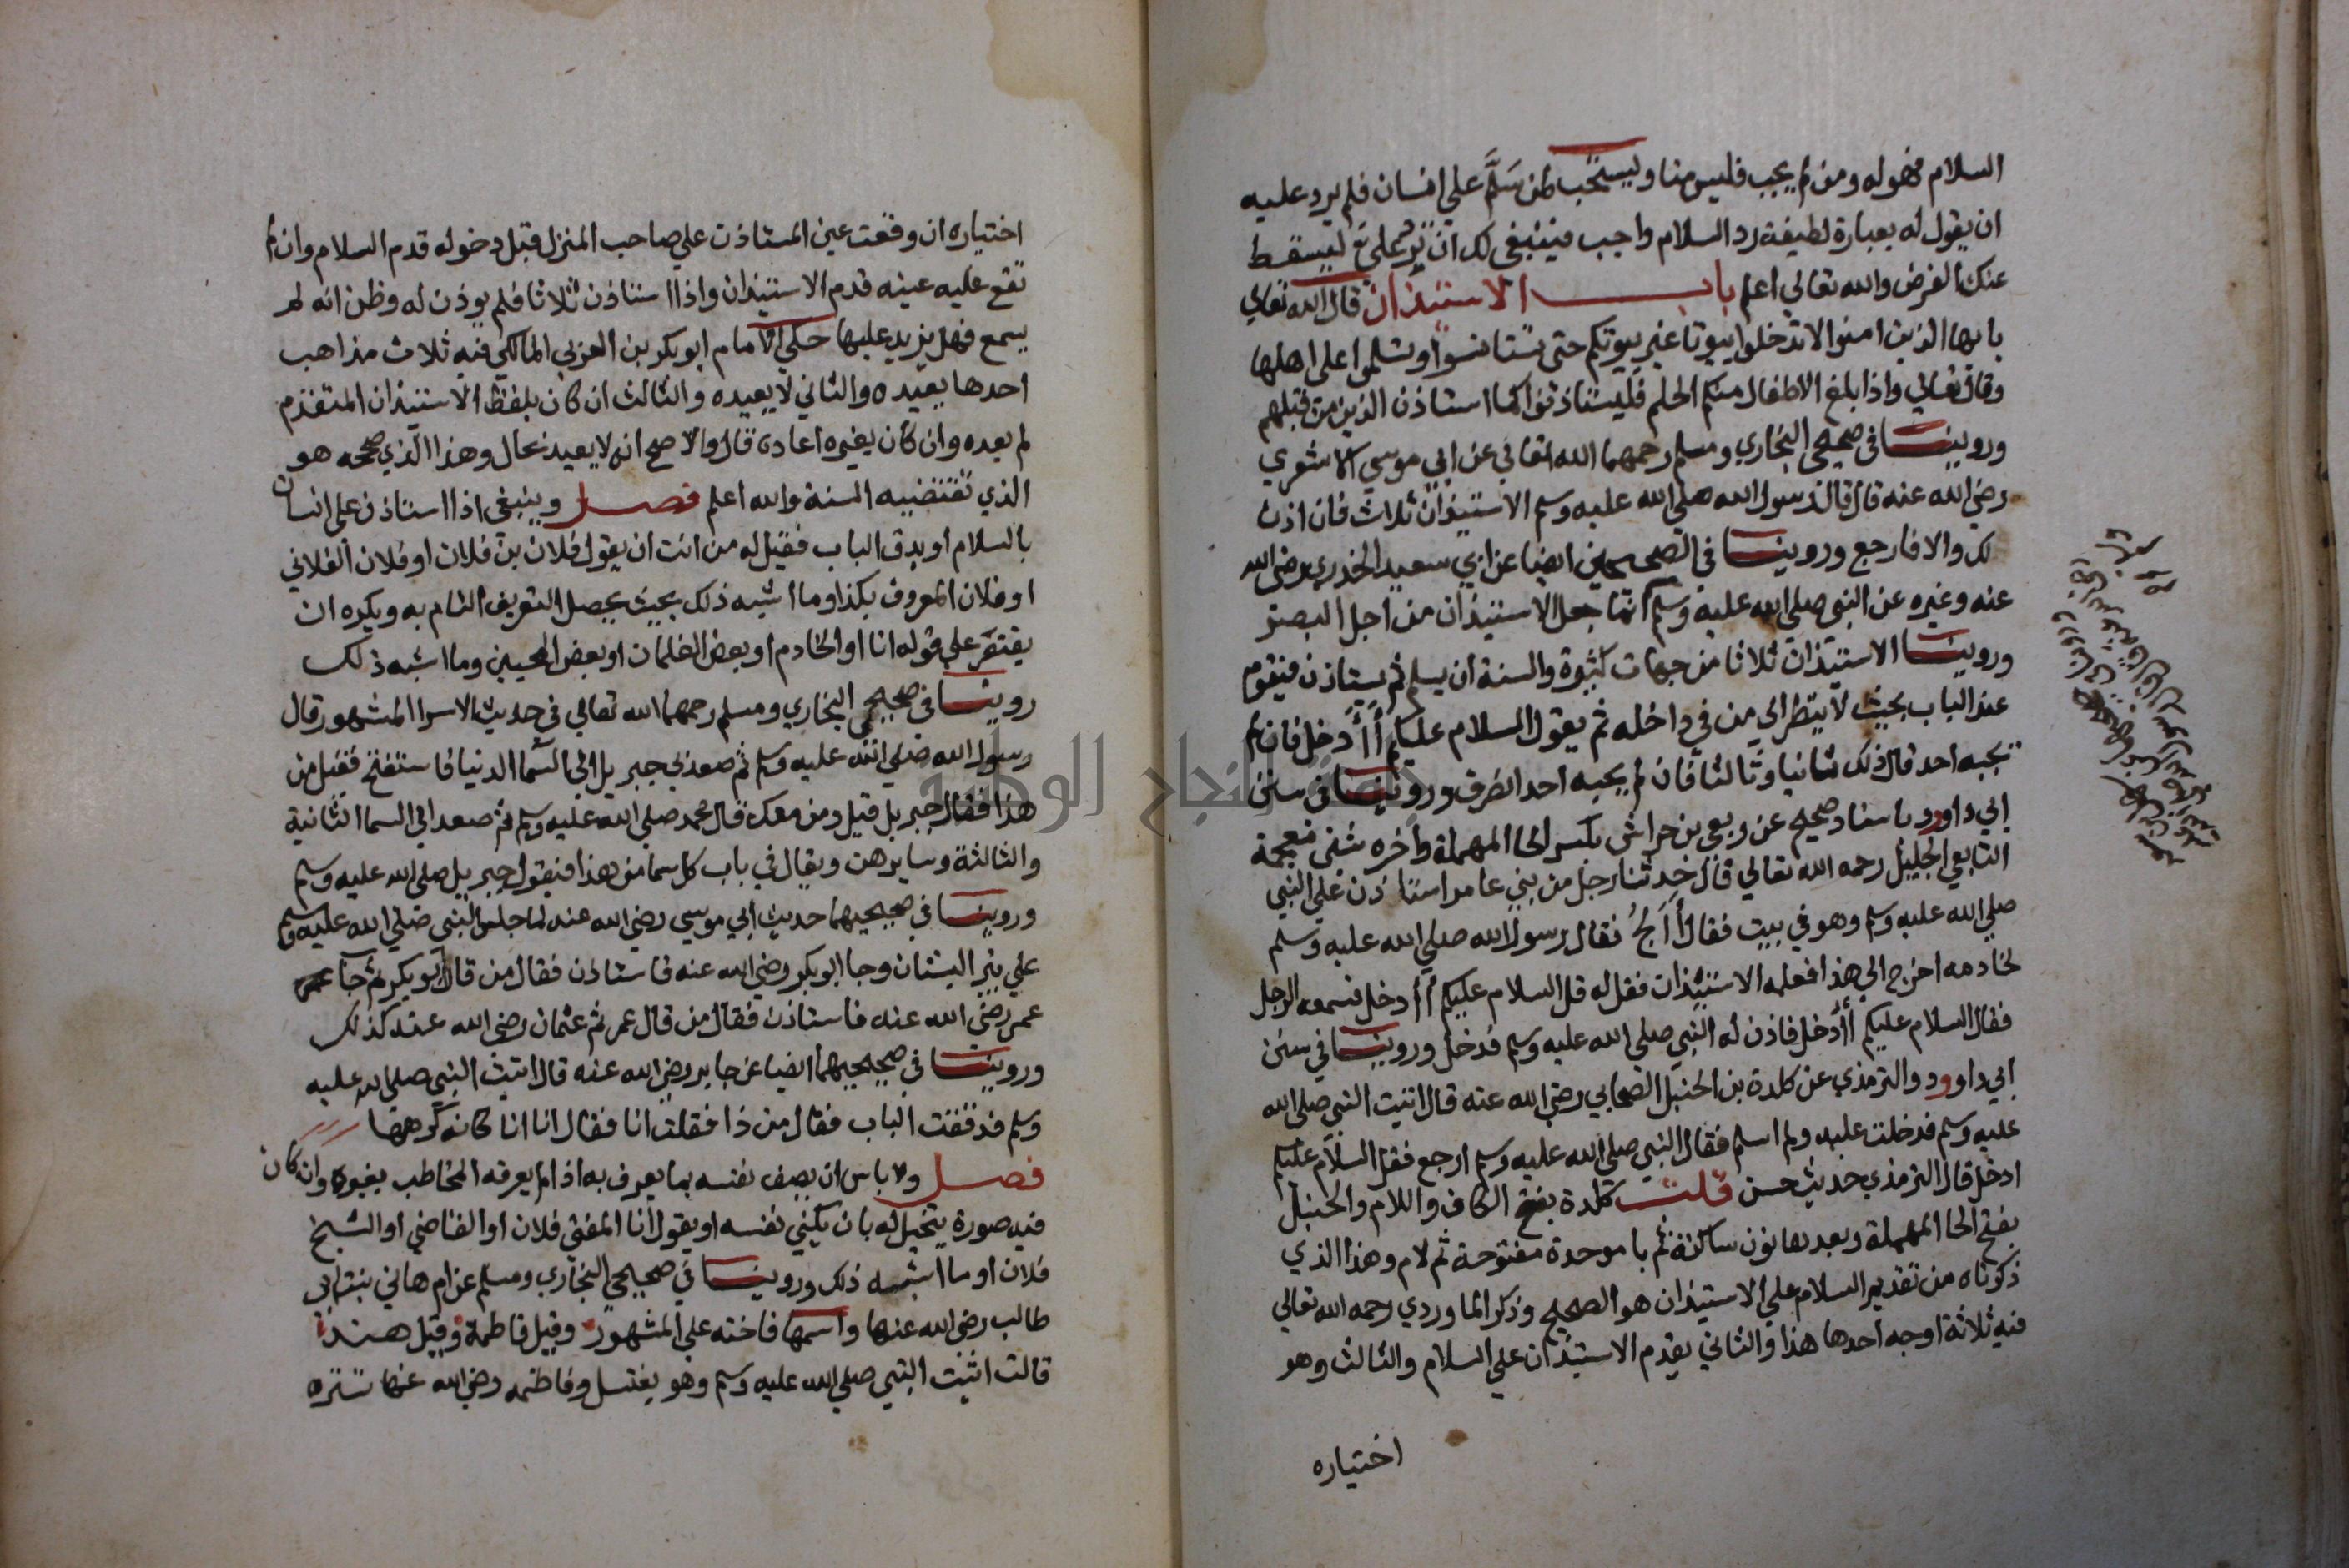 السلام فهو له ومن لم يجب فليس منا ويستحب لمن سلم علي انسان فلم يرد عليه
ان يقول له بعبارة لطيفة رد السلام واجب فينبغي لك ان ترد علي ليسقط
عنك الفرض والله تعالي اعلم باب الاستيذان قال الله تعالي
يا ايها الذين امنوا لا تدخلوا بيوتا غير بيوتكم حتى تستانسوا وتسلموا على اهلها
وقال تعالي واذا بلغ الاطفال منكم الحلم فليستاذنوا كما استاذن الذين من قبلهم
وروينا في صحيحي البخاري ومسلم رحمهما الله تعالي عن ابي موسي الاشعري
رضي الله عنه قال قال رسول الله صلي الله عليه وسلم الاستيذان ثلاث فان اذن
لك والا فارجع وروينا في الصحيحين ايضا عن ابي سعيد الخدري رضي الله
عنه وغيره عن النبي صلي الله عليه وسلم انما جعل الاستيذان من اجل البصر
وروينا الاستيذان ثلاثا من جهات كثيرة والسنة ان يسلم ثم يستاذن فيقوم
عند الباب بحيث لا ينظر الى من في داخله ثم يقول السلام عليكم أأدخل فان لم
يجبه احد قال ذلك ثانيا وثالثا فان لم يجبه احد انصرف وروينا في سنن
ابي داوود باسناد صحيح عن ربعي بن حراش بكسر الحا المهملة واخره شين معجمة
التابعي الجليل رحمه الله تعالي قال حدثنا رجل من بني عامر استاذن علي النبي
صلي الله عليه وسلم وهو في بيت فقال أألج فقال رسول الله صلي الله عليه وسلم
لخادمه اخرج الي هذا فعلمه الاستئذان فقل له قل السلام عليكم أأدخل فسمعه الرجل
فقال السلام عليكم أأدخل فاذن له النبي صلي الله عليه وسلم فدخل وروينا في سنن
ابي داوود والترمذي عن كلدة بن الحنبل الصحابي رضي الله عنه قال اتيت النبي صلي الله
عليه وسلم فدخلت عليه ولم اسلم فقال النبي صلي الله عليه وسلم ارجع فقل السلام عليكم
ادخل قال الترمذي حديث حسن قلت كلدة بفتح الكاف واللام والحنبل
بفتح الحا المهملة وبعدها نون ساكنة ثم با موحدة مفتوحة ثم لام وهذا الذي
ذكرناه من تقديم السلام علي الاستيذان هو الصحيح وذكر الماوردي رحمه الله تعالي
فيه ثلاثة اوجه احدها هذا والثاني يقدم الاستيذان علي السلام والثالث وهو
اختياره
اختياره ان وقعت عين المستاذن علي صاحب المنزل قبل دخوله قدم السلام وان لم
تقع عليه عينه قدم الاستيذان واذا استاذن ثلاثا فلم يوذن له وظن انه لم
يسمع فهل يزيد عليها حكي الامام ابو بكر بن العربي المالكي فيه ثلاث مذاهب
احدها يعيده والثاني لا يعيده والثالث ان كان بلفظ الاستيذان المتقدم
لم يعده وان كان بغيره اعاده قال والاصح انه لا يعيد بحال وهذا الذي صححه هو
الذي تقتضيه السنة والله اعلم فصل وينبغي اذا استاذن على انسان
بالسلام او بدق الباب فقيل له من انت ان يقول فلان بن فلان او فلان الفلاني
او فلان المعروف بكذا وما اشبه ذلك بحيث يحصل التعريف التام به ويكره ان
يقتصر علي قوله انا او الخادم او بعض الغلمان او بعض المحبين وما اشبه ذلك
روينا في صحيحي البخاري ومسلم رحمهما الله تعالي في حديث الاسرا المشهور قال
رسول الله صلي الله عليه وسلم ثم صعد بي جبريل الي السما الدنيا فاستفتح فقيل من
هذا فقال جبريل قيل ومن معك قال محمد صلي الله عليه وسلم ثم صعد الي السما الثانية
والثالثة وسايرهن ويقال في باب كل سما من هذا فيقول جبريل صلي الله عليه وسلم
وروينا في صحيحيهما حديث ابي موسي رضي الله عنه لما جلس النبي صلي الله عليه وسلم
علي بير البستان وجا ابو بكر رضي الله عنه فاستاذن فقال من قال ابو بكر ثم جا
عمر رضي الله عنه فاستاذن فقال من قال عمر ثم عثمان رضي الله عنه كذلك
وروينا في صحيحيهما ايضا عن جابر رضي الله عنه قال اتيت النبي صلى الله عليه
وسلم فدققت الباب فقال من ذا فقلت انا فقال انا انا كانه كرهها
فصل ولا باس ان يصف نفسه بما يعرف به اذا لم يعرفه المخاطب بغيره وان كان
فيه صورة يتخيل له بان يكني نفسه او يقول انا المفتي فلان او القاضي او الشيخ
فلان او ما اشبه ذلك وروينا في صحيحي البخاري ومسلم عن ام هاني بنت ابي
طالب رضي الله عنها واسمها فاخته علي المشهور وقيل فاطمة وقيل هند
قالت اتيت النبي صلي الله عليه وسلم وهو يغتسل وفاطمه رضي الله عنها تستره
النجاح الوطنية